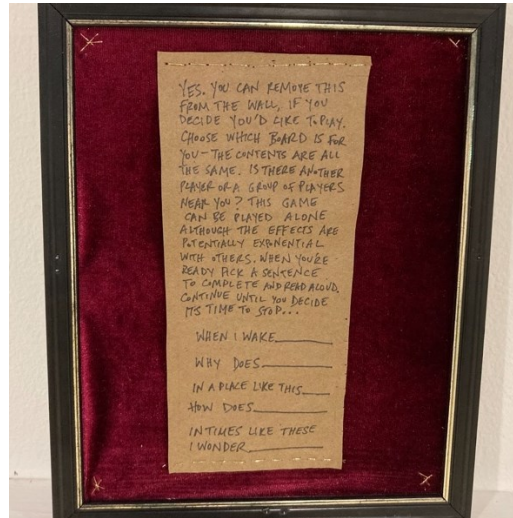 YES. YOU CAN REMOVE THIS
FROM THE WALL, IF YOU
DECIDE YOU'D LIKE TO PLAY.
CHOOSE WHICH BOARD IS FOR
YOU - THE CONTENTS ARE ALL
THE SAME. IS THERE ANOTHER
PLAYER OR A GROUP OF PLAYERS
NEAR YOU? THIS GAME
CAN BE PLAYED ALONE
ALTHOUGH THE EFFECTS ARE
POTENTIALLY EXPONENTIAL
WITH OTHERS. WHEN YOU'RE
READY PICK A SENTENCE
TO COMPLETE AND READ ALOUD.
CONTINUE UNTIL YOU DECIDE
IT'S TIME TO STOP...
WHEN I WAKE______
WHY DOES______
IN A PLACE LIKE THIS___
HOW DOES______
IN TIMES LIKE THESE
I WONDER______